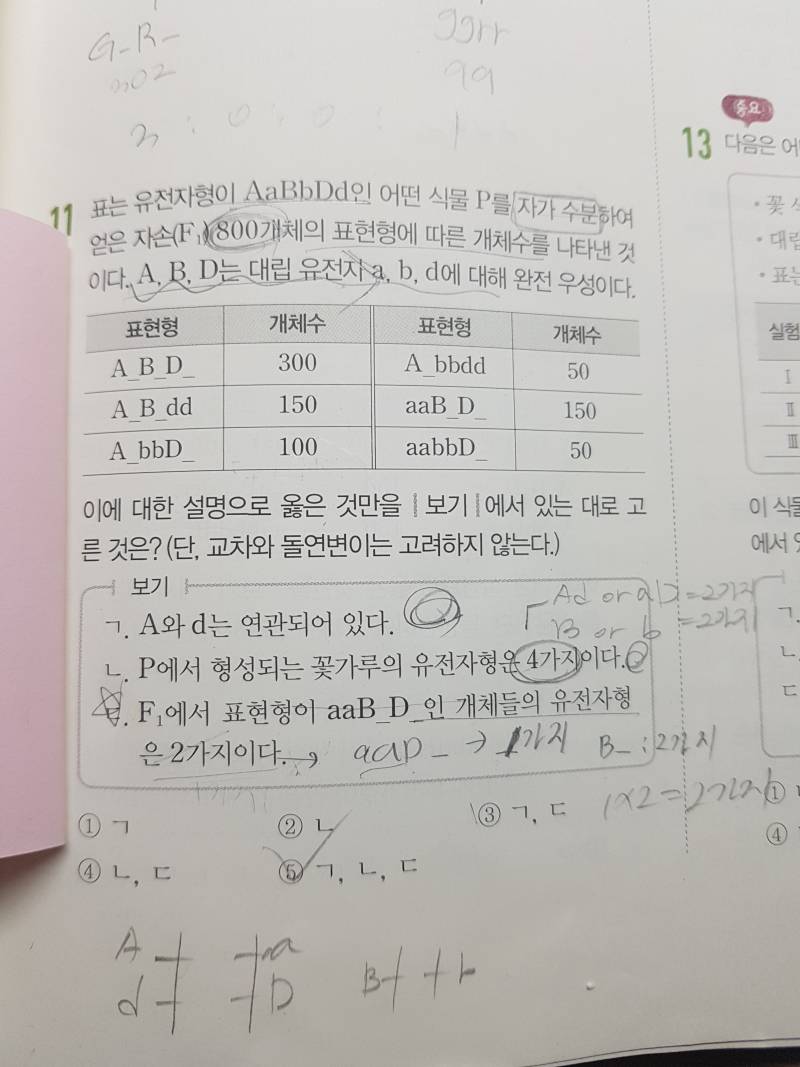 G-R-
ggrr
99
3 : 0 : 0 : 1
중요
13 다음은 어
11 표는 유전자형이 AaBbDd인 어떤 식물 P를 자가 수분하여
얻은 자손(F₁) 800개체의 표현형에 따른 개체수를 나타낸 것
이다. A, B, D는 대립 유전자 a, b, d에 대해 완전 우성이다.
표현형 개체수 표현형 개체수
A_B_D_ 300 A_bbdd 50
A_B_dd 150 aaB_D_ 150
A_bbD_ 100 aabbD_ 50
이에 대한 설명으로 옳은 것만을 보기 에서 있는 대로 고
른 것은? (단, 교차와 돌연변이는 고려하지 않는다.)
보기
ㄱ. A와 d는 연관되어 있다.
Ad or aD = 2가지
B or b = 2가지
ㄴ. P에서 형성되는 꽃가루의 유전자형은 4가지이다.
ㄷ. F₁에서 표현형이 aaB_D_인 개체들의 유전자형
은 2가지이다. → aaD_ → 1가지 B_ : 2가지
1×2=2가지
① ㄱ ② ㄴ ③ ㄱ, ㄷ
④ ㄴ, ㄷ ⑤ ㄱ, ㄴ, ㄷ
A a
d D B b
• 꽃
• 대립
• 표는
실험
Ⅰ
Ⅱ
Ⅲ
이 식물
에서
ㄱ.
ㄴ.
ㄷ
①
④